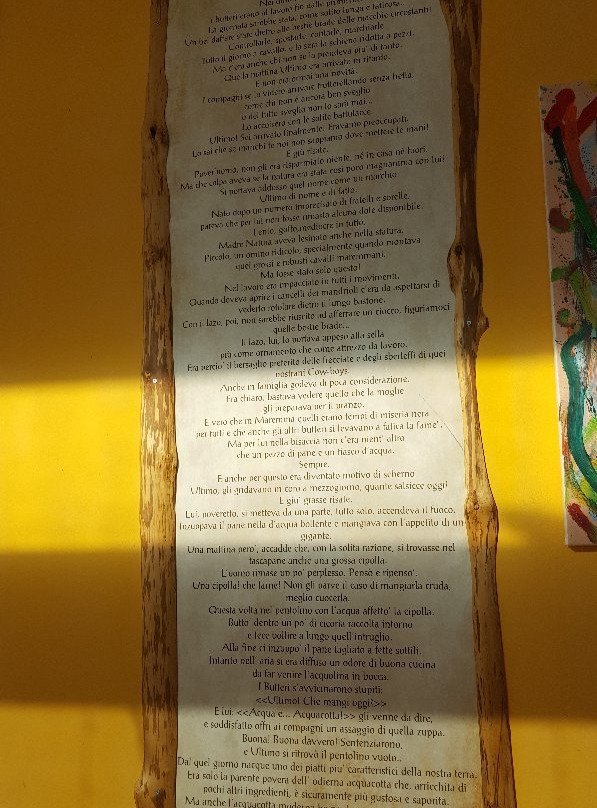 I butteri erano al lavoro fin dalle prime
La giornata sarebbe stata, come solito lunga e faticosa.
Un bel daffare stare dietro alle bestie brade dalle macchie circostanti
Controllarle, spostarle, contarle, marchiarle
Tutto il giorno a cavallo, e la sera la schiena ridotta a pezzi.
Ma c'era anche chi non se la prendeva piu' di tanto.
Quella mattina Ultimo era arrivato in ritardo.
E non era ormai una novità.
I compagni se lo videro arrivare trotterellando senza fretta,
come chi non è ancora ben sveglio
e del tutto sveglio non lo sarà mai...
Lo accolsero con le solite battutacce
Ultimo! Sei arrivato finalmente. Eravamo preoccupati.
Lo sai che se manchi te noi non sappiamo dove mettere le mani!
E giù risate.
Pover'uomo, non gli era risparmiato niente, né in casa né fuori.
Ma che colpa aveva se la natura era stata così poco magnanima con lui!
Si portava addosso quel nome come un marchio
Ultimo di nome e di fatto.
Nato dopo un numero imprecisato di fratelli e sorelle,
pareva che per lui non fosse rimasta alcuna dote disponibile.
Lento, goffo, mediocre in tutto.
Madre Natura aveva lesinato anche nella statura.
Piccolo, un omino ridicolo, specialmente quando montava
quei grossi e robusti cavalli maremmani.
Ma fosse stato solo questo!
Nel lavoro era impacciato in tutti i movimenti.
Quando doveva aprire i cancelli dei mandrioli c'era da aspettarsi di
vederlo rotolare dietro il lungo bastone.
Con il lazo, poi, non sarebbe riuscito ad afferrare un ciocco, figuriamoci
quelle bestie brade...
Il lazo, lui, lo portava appeso alla sella
più come ornamento che come attrezzo da lavoro.
Era percio' il bersaglio preferito delle frecciate e degli sberleffi di quei
nostrani Cow-boys.
Anche in famiglia godeva di poca considerazione.
Era chiaro, bastava vedere quello che la moglie
gli preparava per il pranzo.
E vero che in Maremma quelli erano tempi di miseria nera
per tutti e che anche gli altri butteri si levavano a fatica la fame'.
Ma per lui nella bisaccia non c'era nient' altro
che un pezzo di pane e un fiasco d'acqua.
Sempre.
E anche per questo era diventato motivo di scherno
Ultimo, gli gridavano in coro a mezzogiorno, quante salsicce oggi!
E giu' grasse risate.
Lui, poveretto, si metteva da una parte, tutto solo, accendeva il fuoco,
inzuppava il pane nella d'acqua bollente e mangiava con l'appetito di un
gigante.
Una mattina pero', accadde che, con la solita razione, si trovasse nel
tascapane anche una grossa cipolla.
L'uomo rimase un po' perplesso. Pensò e ripenso'.
Una cipolla! che fame! Non gli parve il caso di mangiarla cruda,
meglio cuocerla.
Questa volta nel pentolino con l'acqua affetto' la cipolla.
Butto' dentro un po' di cicoria raccolta intorno
e fece bollire a lungo quell'intruglio.
Alla fine ci inzuppo' il pane tagliato a fette sottili.
Intanto nell' aria si era diffuso un odore di buona cucina
da far venire l'acquolina in bocca.
I Butteri s'avvicinarono stupiti:
<<Ultimo! Che mangi oggi?>>
E lui: <<Acqua e... Acquacotta!>> gli venne da dire,
e soddisfatto offrì ai compagni un assaggio di quella zuppa.
Buona! Buona davvero! Sentenziarono,
e Ultimo si ritrovò il pentolino vuoto..
Da quel giorno nacque uno dei piatti piu' caratteristici della nostra terra.
Era solo la parente povera dell' odierna acquacotta che, arricchita di
pochi altri ingredienti, è sicuramente più gustosa e saporita.
Ma anche l'acquacotta moderna